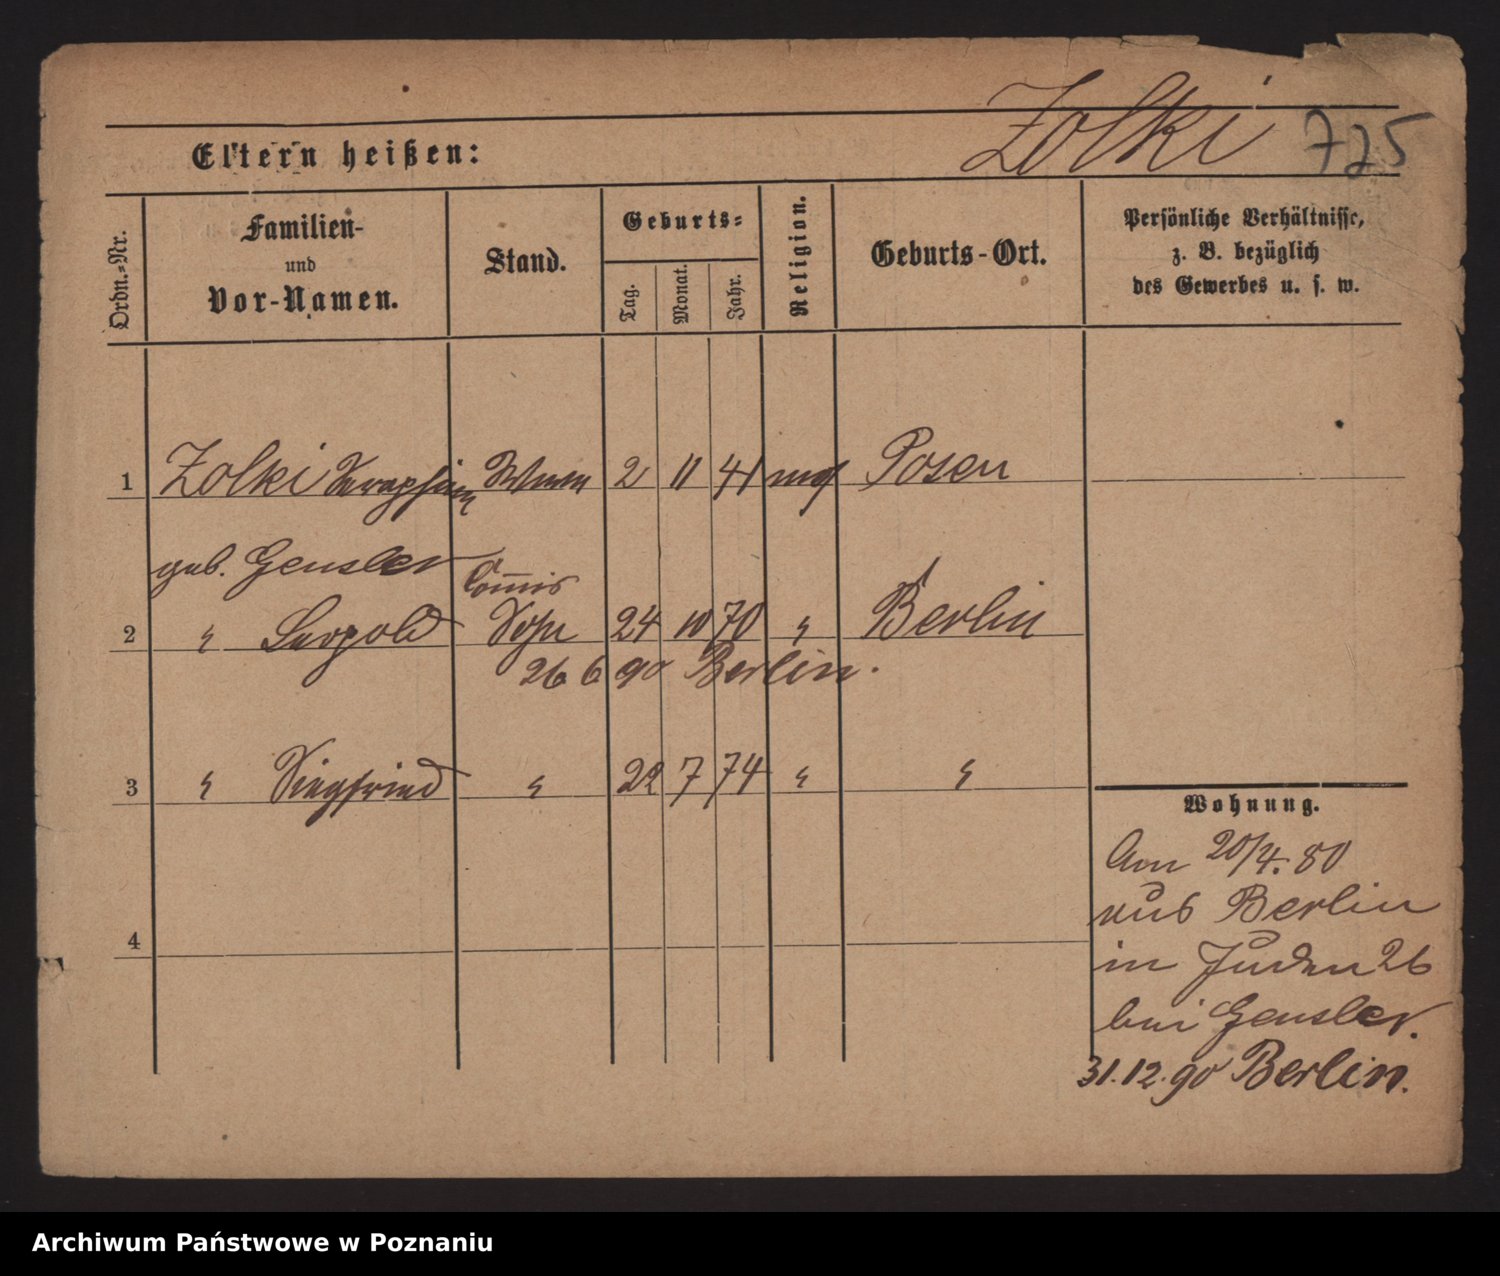 Zolki 725
Eltern heißen:
Ordn.=Nr.
Familien-
und
Vor-Namen.
Stand.
Geburts=
Tag.
Monat.
Jahr.
Religion.
Geburts-Ort.
Persönliche Verhältnisse,
z. B. bezüglich
des Gewerbes u. s. w.
1 Zolki Seraphine Wwe 2 11 41 mos Posen
geb. Gensler
Com̄is
2 " Leopold Sohn 24 10 70 " Berlin
26 6 90 Berlin.
3 " Siegfried " 22 7 74 " "
4
Wohnung.
Am 20/4. 80
aus Berlin
in Juden 26
bei Gensler.
31.12.90 Berlin.
Archiwum Państwowe w Poznaniu